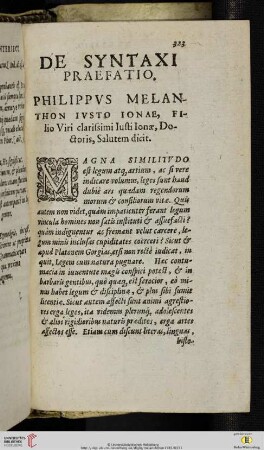 323
DE SYNTAXI
PRAEFATIO.
PHILIPPVS MELAN-
THON IVSTO IONAE, FI-
lio Viri clarissimi Iusti Ionæ, Do-
ctoris, Salutem dicit.
MAGNA SIMILITVDO
est legum atq; artium, ac si vere
iudicare volumus, leges sunt haud
dubiè ars quædam regendorum
morum & consiliorum vitæ. Quis
autem non videt, quàm impatienter ferant legum
vincula homines non satis instituti & assuefacti?
quàm indignentur ac fremant velut carcere, le-
gum minis inclusas cupiditates coerceri? Sicut &
apud Platonem Gorgias, etsi non rectè iudicat, in-
quit, Legem cum natura pugnare. Hæc contu-
macia in iuuentute magis conspici potest, & in
barbaris gentibus, quò quæq; est ferocior, eò mi-
nus habet legum & disciplinæ, & plus sibi sumit
licentiæ. Sicut autem affecti sunt animi agrestio-
res erga leges, ita videmus plerunq; adolescentes
& alios rigidioribus naturis præditos, erga artes
affectos esse. Etiam cum discunt literas, linguas,
histo-
© Universitätsbibliothek Heidelberg